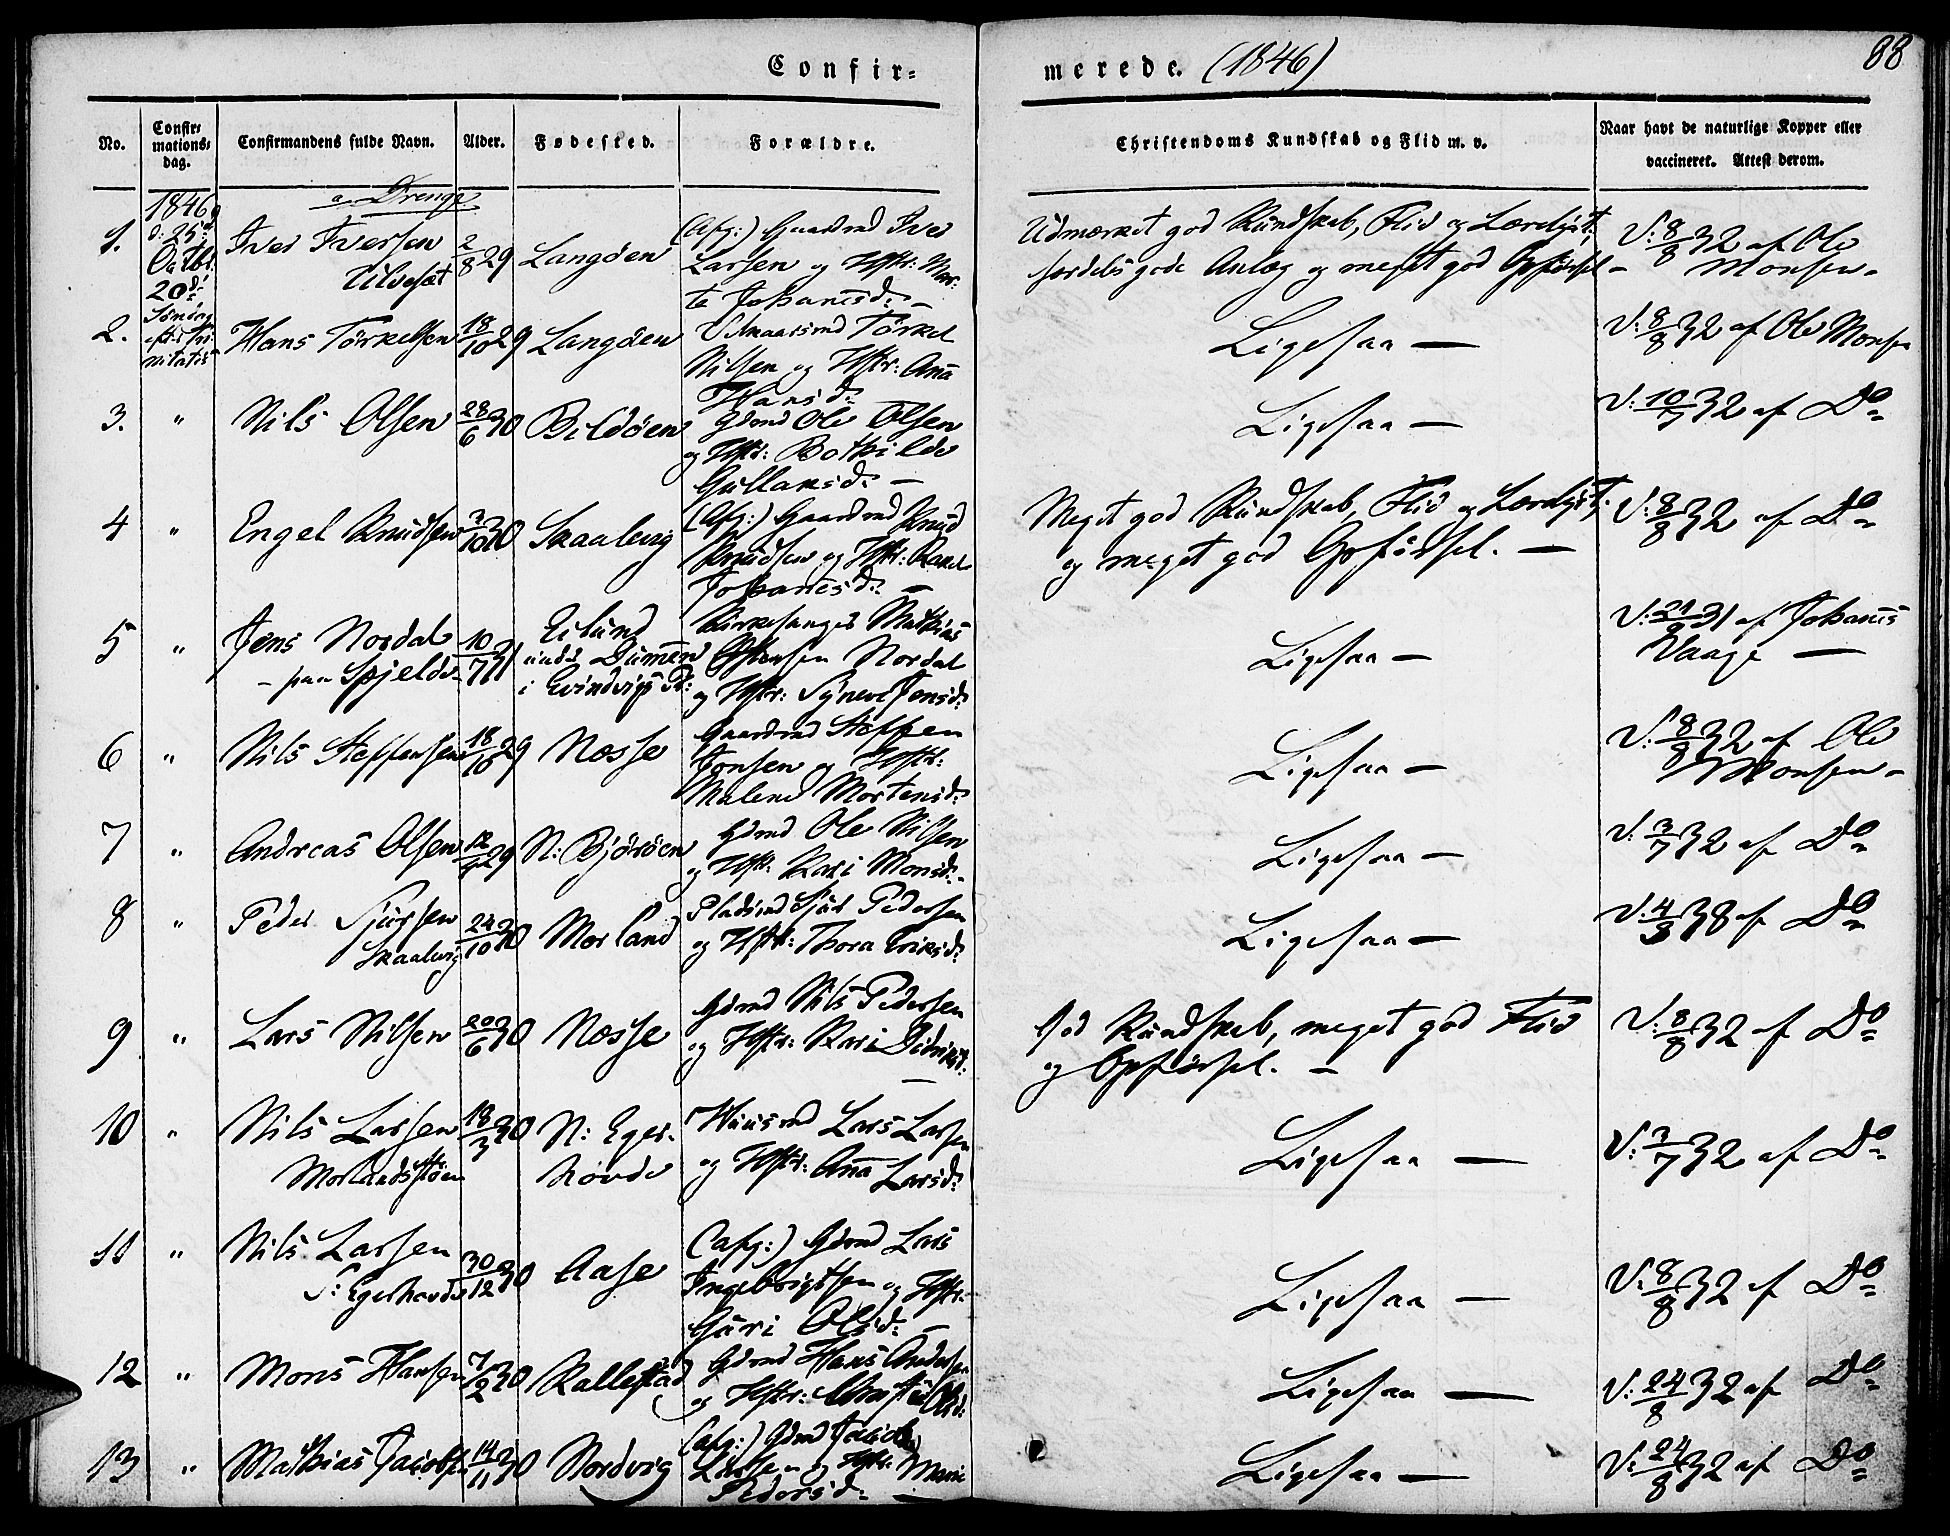 Confir=
merede. (1846)
88
No.
Confir=
mations=
dag.
Confirmandens fulde Navn.
Alder.
Fødested.
Forældre.
Christendoms Kundskab og Flid m. v.
Naar havt de naturlige Kopper eller
vaccineret. Attest derom.
a. Drenge
1.
1846
d: 25d
Octbr.
20d.
Søndag
eft: Tri-
nitatis
Iver Iversen
2/8 29
Langøen
(Afg:) Gaardmd Iver
Larsen og Hstr: Mar-
ta Johannesd: –
Udmærket god Kundskab, Flid og Lærelyst,
særdeles gode Anlæg og meget god Opførsel –
V: 8/8 32 af Ole
Monsen –
2.
Hans Torkelsen
18/10 29
Langøen
Torkel
Nilsen og Hstr: Anna
Hansd:
Ligesaa –
V: 8/8 32 af Ole Monsen
3.
"
Nils Olsen
28/6 30
Bildøen
Gdmd Ole Olsen
og Hstr: Bothilde
Gullaksd: –
Ligesaa –
V: 32 af Do
4
"
Engel Knudsen
30
Skaalevig
(Afg:) Gaardmd Knud
Knudsen og Hstr: Rakel
Johannesd: –
Meget god Kundskab, Flid og Lærelyst,
og meget god Opførsel. –
V: 8/8 32 af Do
5
"
Jens Nordal
– paa Spjeld –
10/7 31
Eilund
i Evindvigs Pr:
Kirkesanger Mathias
Nordal
og Hstr: Synneve Jensd:
Ligesaa –
V: 31 af Johannes
Vaage –
6
"
Nils Steffensen
18/10 29
Nesse
Gaardmd Steffen
Jonsen og Hstr:
Malene Mortensd:
Ligesaa –
V: 8/8 32 af Ole
Monsen –
7
"
Andreas Olsen
29
N: Bjørøen
Gdmd Ole Nilsen
og Hstr: Kari Monsd: –
Ligesaa –
V: 32 af Do
8
"
Peder Sjursen
Skaalevig
24/10 30
Morland
Pladsmd Sjur Pedersen
og Hstr: Thora Eriksd:
Ligesaa –
V: 4/3 38 af Do
9
"
Lars Nilsen
20/6 30
Nesse
Gdmd Nils Pedersen
og Hstr: Kari Didriksd:
God Kundskab, meget god Flid
og Opførsel. –
V: 8/8 32 af Do
10
"
Nils Larsen
Morlandsstøen
18/3 30
N: Eger-
hovde
Huusmd Lars Larsen
og Hstr: Anna
Larsd:
Ligesaa –
V: 32 af Do
11
"
Nils Larsen
S: Egerhovde
30/12 30
Aase
(afg:) Gdmd Lars
Ingebrigtsen og Hstr:
Guri Olsd: –
Ligesaa –
V: 8/8 32 af Do
12
"
Mons Hansen
7/2 30
Kallestad
Gdmd Hans Andersen
og Hstr:
Ligesaa –
V: 24/8 32 af Do
13
"
Mathias Jacobsen
14/11 30
Nordvig
(afg:) Gdmd Jacob
Larsen og Hstr: Marie
Pedersd: –
Ligesaa –
V: 24/8 32 af Do